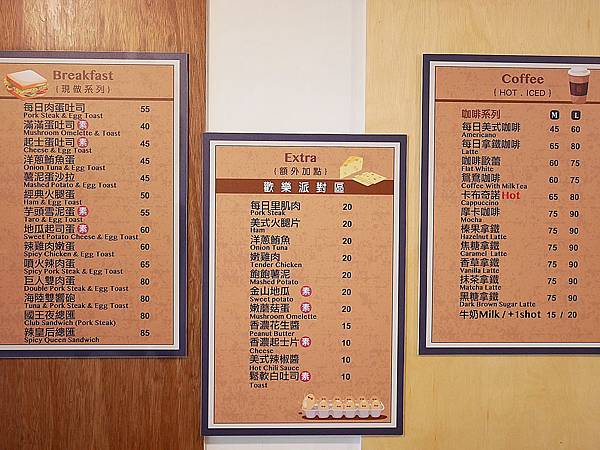 Breakfast
(現做系列)
每日肉蛋吐司 55
Pork Steak & Egg Toast
滿滿蛋吐司 素 40
Mushroom Omelette & Toast
起士蛋吐司 素 45
Cheese & Egg Toast
洋蔥鮪魚蛋 45
Onion Tuna & Egg Toast
薯泥蛋沙拉 45
Mashed Potato & Egg Toast
經典火腿蛋 50
Ham & Egg Toast
芋頭雪泥蛋 素 55
Taro & Egg Toast
地瓜起司蛋 素 60
Sweet Potato Cheese & Egg Toast
辣雞肉嫩蛋 60
Spicy Chicken & Egg Toast
噴火辣肉蛋 65
Spicy Pork Steak & Egg Toast
巨人雙肉蛋 80
Double Pork Steak & Egg Toast
海陸雙響砲 80
Tuna & Pork Steak & Egg Toast
國王夜總匯 80
Club Sandwich (Pork Steak)
辣皇后總匯 85
Spicy Queen Sandwich
Extra
(額外加點)
歡樂派對區
每日里肌肉 20
Pork Steak
美式火腿片 20
Ham
洋蔥鮪魚 20
Onion Tuna
嫩雞肉 20
Tender Chicken
飽飽薯泥 20
Mashed Potato
金山地瓜 素 20
Sweet potato
嫩蘑菇蛋 素 20
Mushroom Omelette
香濃花生醬 15
Peanut Butter
香濃起士片 素 10
Cheese
美式辣椒醬 10
Hot Chili Sauce
鬆軟白吐司 素 10
Toast
Coffee
(HOT . ICED)
咖啡系列 M L
每日美式咖啡 45 60
Americano
每日拿鐵咖啡 65 80
Latte
咖啡歐蕾 60 75
Flat White
鴛鴦咖啡 60 75
Coffee With Milk Tea
卡布奇諾Hot 65 80
Cappuccino
摩卡咖啡 75 90
Mocha
榛果拿鐵 75 90
Hazelnut Latte
焦糖拿鐵 75 90
Caramel Latte
香草拿鐵 75 90
Vanilla Latte
抹茶拿鐵 75 90
Matcha Latte
黑糖拿鐵 75 90
Dark Brown Sugar Latte
牛奶Milk / +1shot 15 / 20